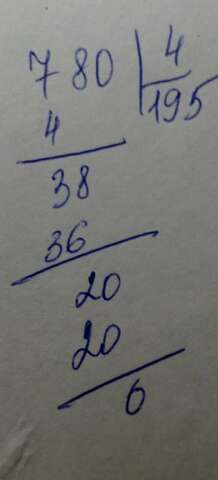 780 4
4 195
38
36
20
20
0